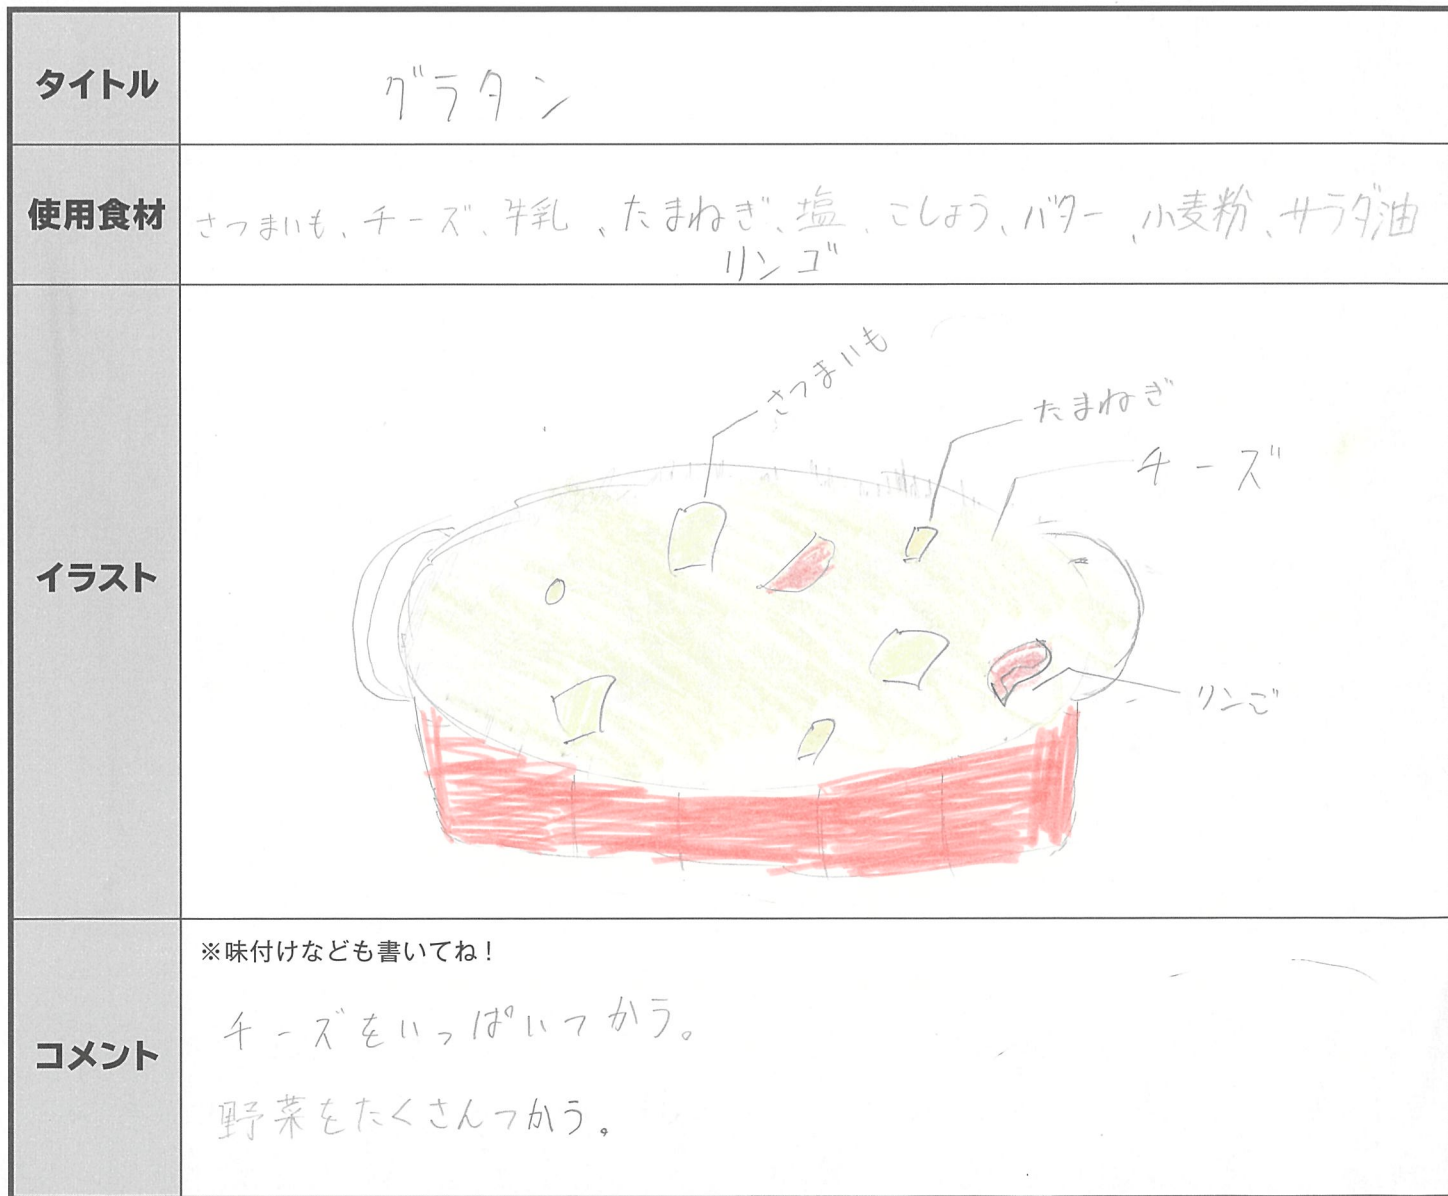 タイトル
グラタン
使用食材
さつまいも、チーズ、牛乳、たまねぎ、塩、こしょう、バター、小麦粉、サラダ油
リンゴ
イラスト
さつまいも
たまねぎ
チーズ
リンご
コメント
※味付けなども書いてね！
チーズをいっぱいつかう。
野菜をたくさんつかう。